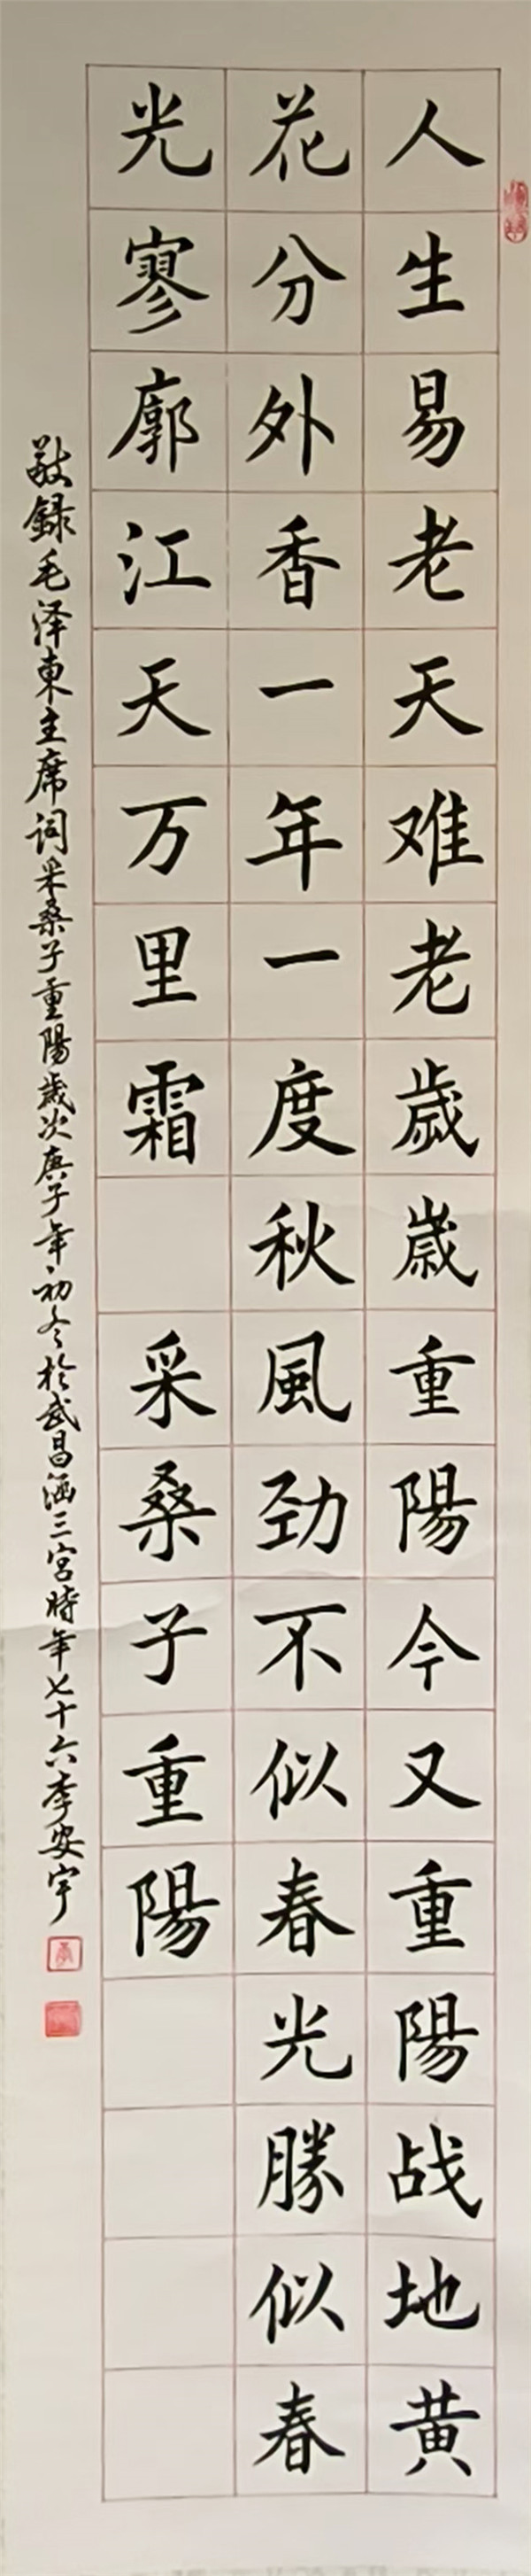 人生易老天难老歲歲重陽今又重陽战地黄
花分外香一年一度秋風劲不似春光勝似春
光寥廓江天万里霜 采桑子重陽
敬録毛泽東主席词采桑子重陽歲次庚子年初冬於武昌涵三宮時年七十六李安宇